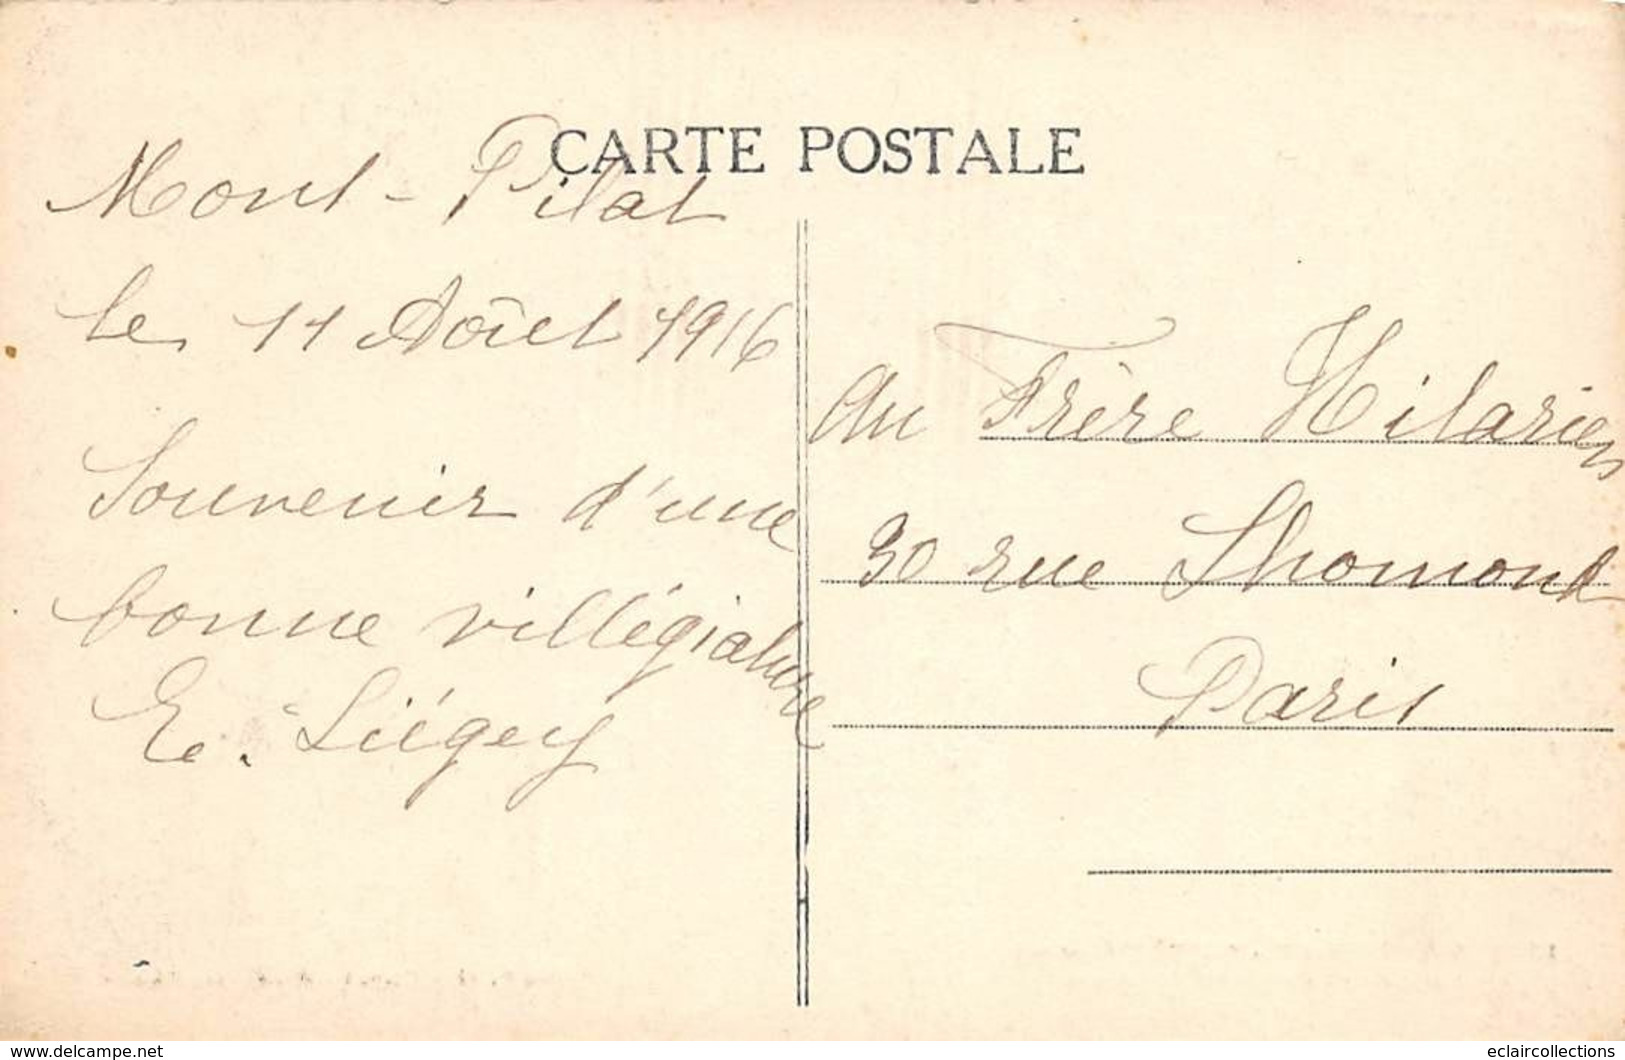 CARTE POSTALE
Mont-Pilat
le 11 Août 1916
Souvenir d'une
bonne villégiature
E. Liégey
au Frère Hilarien
30 rue Lhomond
Paris
www.delcampe.net
eclaircollections